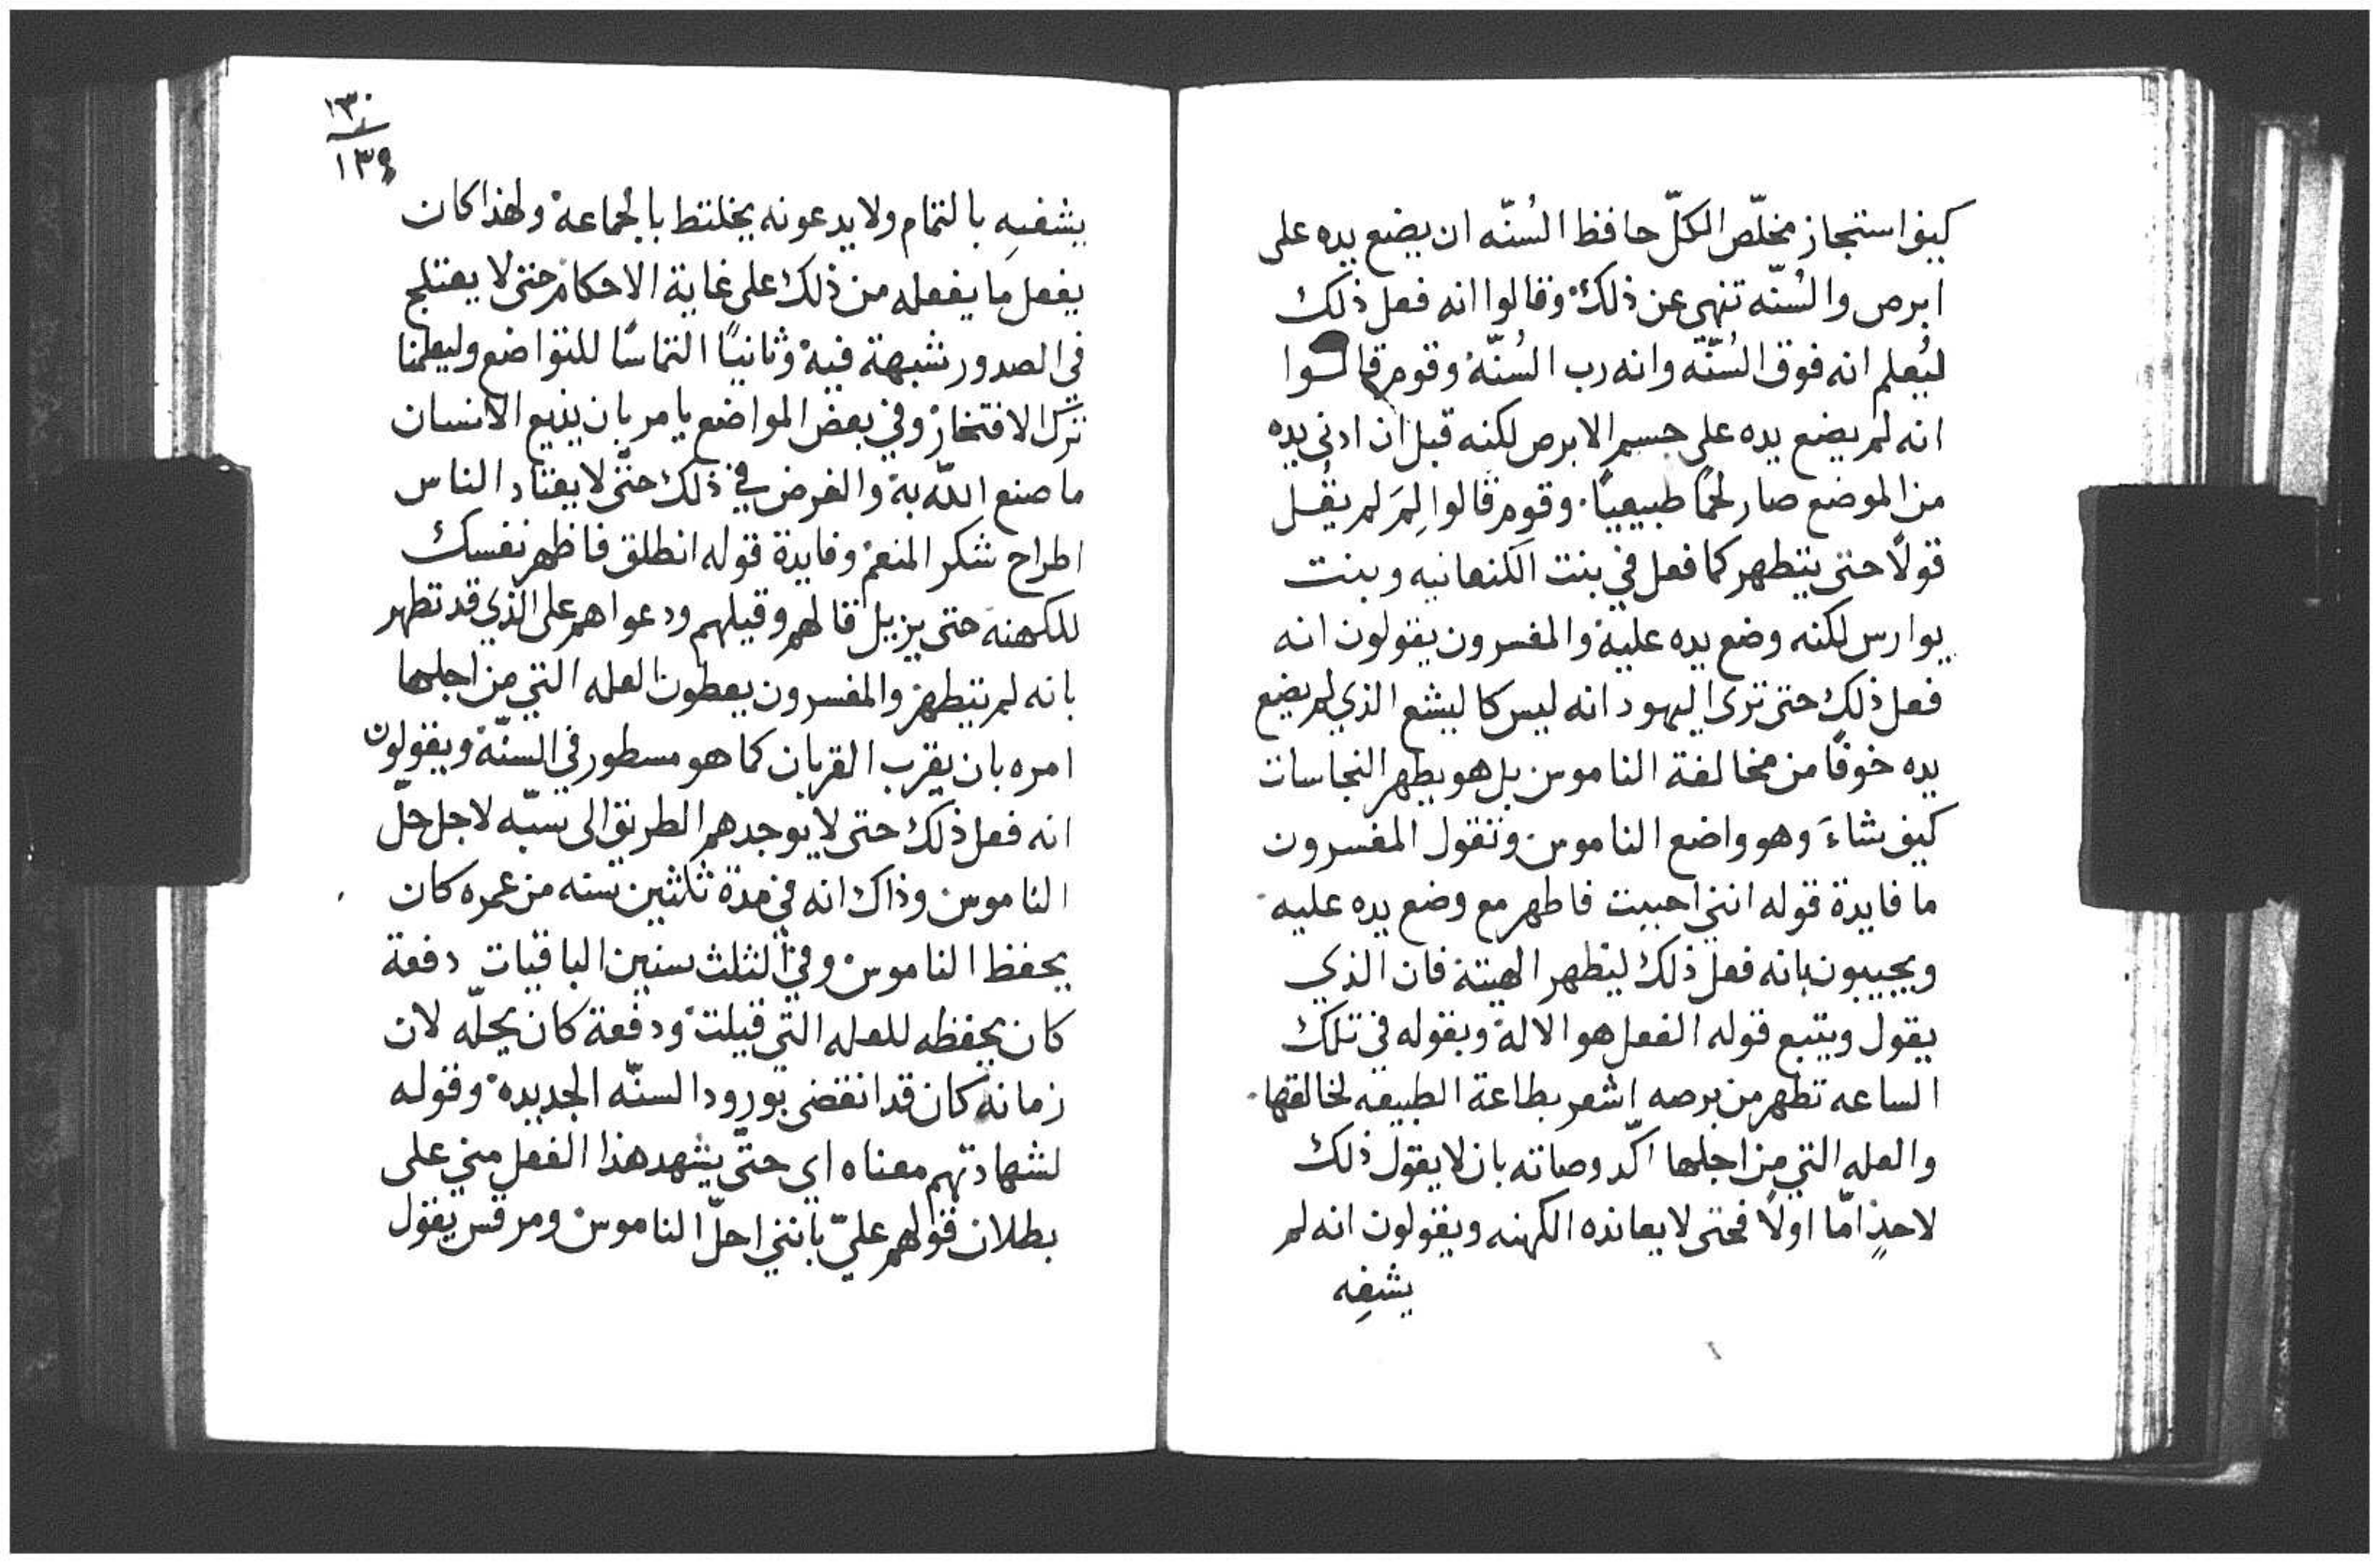 كيف استجاز مخلّص الكلّ حافظ السُنّه ان يضع يده على
ابرص والسُنّه تنهى عن ذلك وقالوا انه فعل ذلك
ليُعلم انه فوق السُنّه وانه رب السُنّه وقوم قالوا
انه لم يضع يده على جسم الابرص لكنه قبل ان ادنى يده
من الموضع صار لحمًا طبيعيًا وقوم قالوا لِمَ لم يقُل
قولًا حتى يتطهر كما فعل في بنت الكنعانيه وبنت
يوارس لكنه وضع يده عليه والمفسرون يقولون انه
فعل ذلك حتى ترى اليهود انه ليس كاليشع الذي لم يضع
يده خوفًا من مخالفة الناموس بل هو يطهر النجاسات
كيف شاءَ وهو واضع الناموس وتقول المفسرون
ما فايدة قوله انني احببت فاطهر مع وضع يده عليه
ويجيبون بانه فعل ذلك ليظهر الهيتة فان الذي
يقول ويتبع قوله الفعل هو الاله وبقوله في تلك
الساعه تطهر من برصه اشعر بطاعة الطبيعه لخالقها
والعله التي من اجلها اكّد وصاته بان لا يقول ذلك
لاحدٍ امّا اولًا فحتى لا يعانده الكهنه ويقولون انه لم
يشفِه
١٣٠
١٣٩
يشفيهِ بالتمام ولا يدعونه يختلط بالجماعة ولهذا كان
يفعل ما يفعله من ذلك على غاية الاحكام حتى لا يعتلج
في الصدور شبهة فيه وثانيًا التماسًا للتواضع وليعلمنا
ترك الافتخار وفي بعض المواضع يامر بان يذيع الانسان
ما صنع اللّه به والغرض في ذلك حتّى لا يعتاد الناس
اطراح شكر المنعم وفايدة قوله انطلق فاظهر نفسك
للكهنه حتى يزيل قالهم وقيلهم ودعواهم على الذي قد تطهر
بانه لم يتطهر والمفسرون يعطون العله التي من اجلها
امره بان يقرب القربان كما هو مسطور في السنّة ويقولون
انه فعل ذلك حتى لا يوجدهم الطريق الى سبّه لاجل حلّ
الناموس وذاك انه في مدة ثلثين سنه من عمره كان
يحفظ الناموس وفي الثلث سنين الباقيات دفعة
كان يحفظه للعله التي قيلت ودفعة كان يحلّه لان
زمانه كان قد انقضى بورود السنّه الجديده وقوله
لشهادتهم معناه اي حتّى يشهد هذا الفعل مني على
بطلان قولهم عليّ بانني احلّ الناموس ومرقس يقول